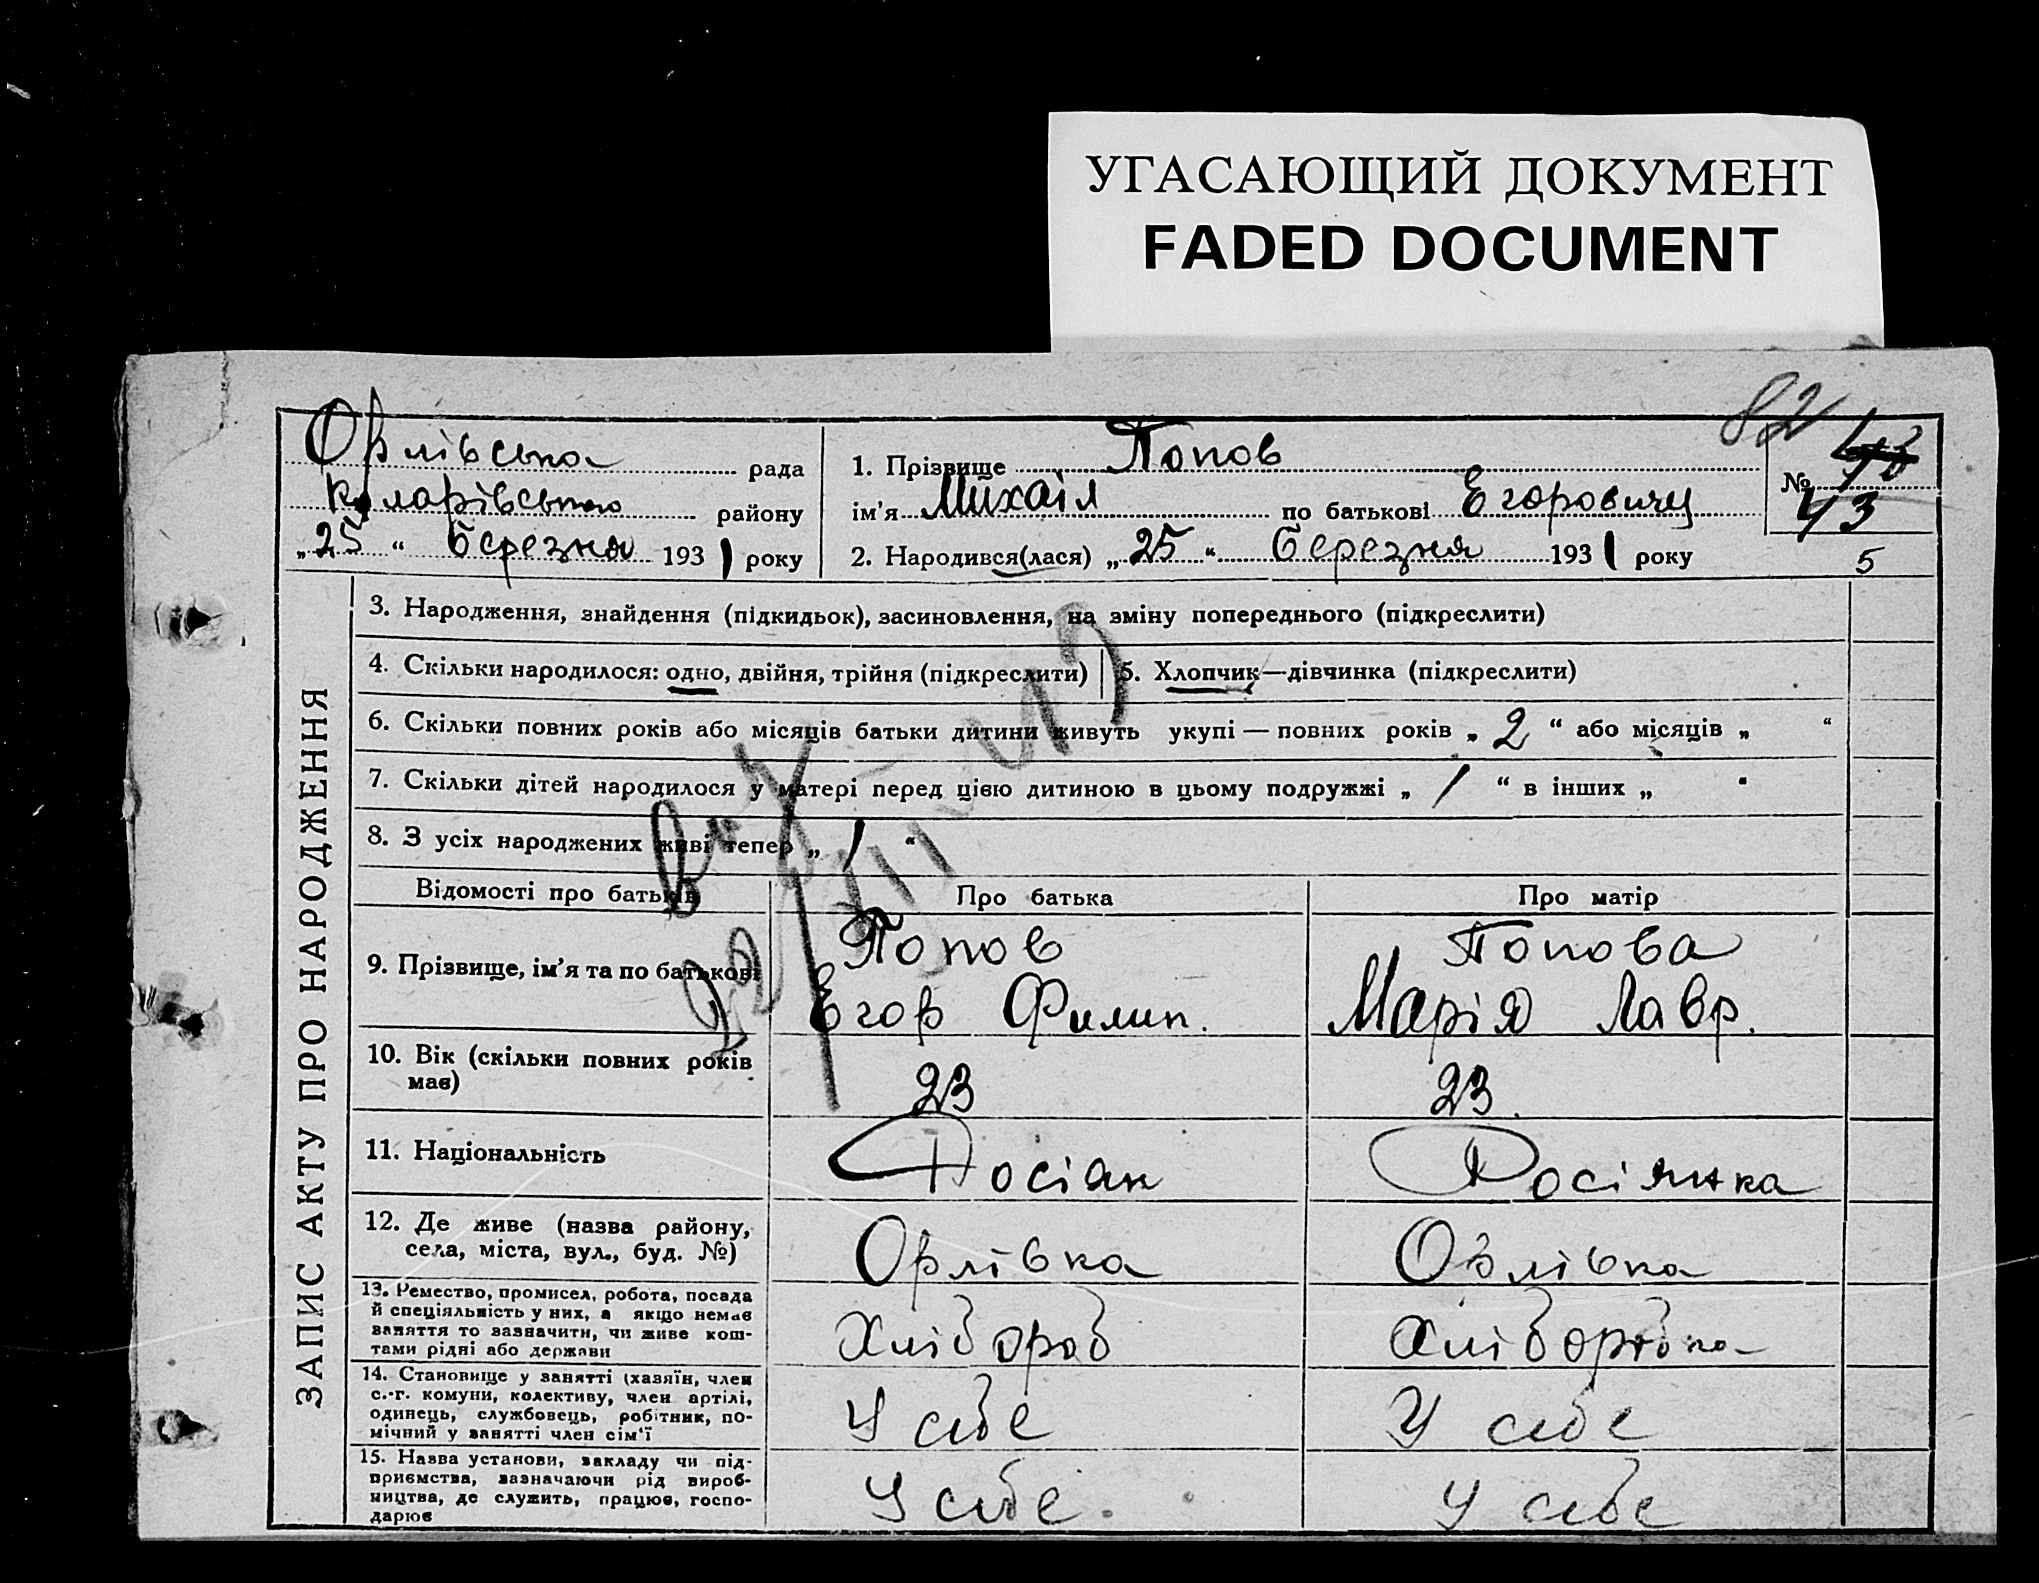 УГАСАЮЩИЙ ДОКУМЕНТ
FADED DOCUMENT
82
Орлівська рада
Коларівського району
„25“ березня 1931 року
1. Прізвище Попов
ім’я Михаіл по батькові Егоровичу
2. Народився(лася) „25“ березня 1931 року
№ 43
43
5
ЗАПИС АКТУ ПРО НАРОДЖЕННЯ
3. Народження, знайдення (підкидьок), засиновлення, на зміну попереднього (підкреслити)
4. Скільки народилося: одно, двійня, трійня (підкреслити)
5. Хлопчик—дівчинка (підкреслити)
6. Скільки повних років або місяців батьки дитини живуть укупі — повних років „2“ або місяців „ “
7. Скільки дітей народилося у матері перед цією дитиною в цьому подружжі „1“ в інших „ “
8. З усіх народжених живі тепер „1“
Відомості про батьків
Про батька
Про матір
9. Прізвище, ім’я та по батькові
Попов
Егор Филип.
Попова
Марія Лавр.
10. Вік (скільки повних років
має)
23
23.
11. Національність
Росіян
Росіянка
12. Де живе (назва району,
села, міста, вул., буд. №)
Орлівка
Орлівка
13. Ремество, промисел, робота, посада
й спеціяльність у них, а якщо немає
заняття то зазначити, чи живе кош-
тами рідні або держави
Хлібороб
Хліборобка
14. Становище у занятті (хазяїн, член
с.-г. комуни, колективу, член артілі,
одинець, службовець, робітник, по-
мічний у занятті член сім’ї
У себе
У себе
15. Назва установи, закладу чи під-
приємства, зазначаючи рід вироб-
ництва, де служить, працює, госпо-
дарює
У себе.
У себе